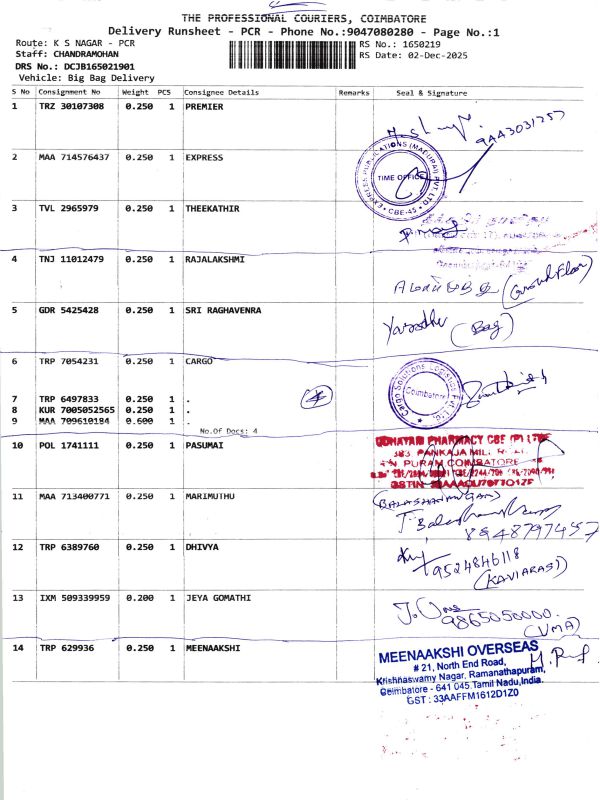 THE PROFESSIONAL COURIERS, COIMBATORE
Delivery Runsheet - PCR - Phone No.:9047080280 - Page No.:1
Route: K S NAGAR - PCR
RS No.: 1650219
Staff: CHANDRAMOHAN
RS Date: 02-Dec-2025
DRS No.: DCJB165021901
Vehicle: Big Bag Delivery
S No Consignment No Weight PCS Consignee Details Remarks Seal & Signature
1 TRZ 30107308 0.250 1 PREMIER
9443031257
2 MAA 714576437 0.250 1 EXPRESS
EXPRESS PUBLICATIONS (MADURAI) PVT. LTD.
TIME OFFICE
CBE-45
3 TVL 2965979 0.250 1 THEEKATHIR
4 TNJ 11012479 0.250 1 RAJALAKSHMI
(Ground Floor)
5 GDR 5425428 0.250 1 SRI RAGHAVENRA
(Bag)
6 TRP 7054231 0.250 1 CARGO
Cargo Solutions Logistics Pvt. Ltd.
Coimbatore
7 TRP 6497833 0.250 1 .
8 KUR 7005052565 0.250 1 .
9 MAA 709610184 0.600 1 .
4
No.Of Docs: 4
10 POL 1741111 0.250 1 PASUMAI
PHARMACY CBE (P) LTD
383 PANKAJA MILL
PURAM COIMBATORE
11 MAA 713400771 0.250 1 MARIMUTHU
(BALASHANMUGAM)
8248797457
12 TRP 6389760 0.250 1 DHIVYA
9524846118
(KAVIARASI)
13 IXM 509339959 0.200 1 JEYA GOMATHI
J. Uma
9865050000.
(UMA)
14 TRP 629936 0.250 1 MEENAAKSHI
MEENAAKSHI OVERSEAS
# 21, North End Road,
Krishnaswamy Nagar, Ramanathapuram,
Coimbatore - 641 045.Tamil Nadu,India.
GST : 33AAFFM1612D1Z0